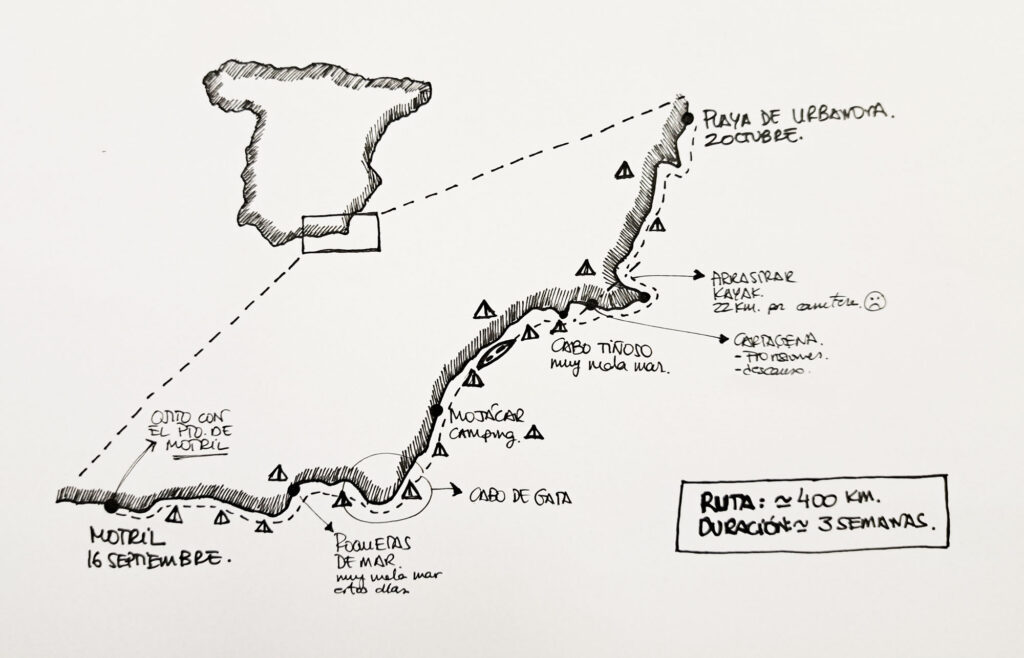 PLAYA DE URBANOVA.
2 OCTUBRE.
ARRASTRAR
KAYAK.
22 KM. por carretera.
CARTAGENA.
- Provisiones.
- descanso.
CABO TIÑOSO
muy mala mar.
MOJÁCAR
camping.
OJITO CON
EL PTO. DE
MOTRIL
CABO DE GATA
MOTRIL
16 SEPTIEMBRE.
ROQUETAS
DE MAR.
muy mala mar
estos días
RUTA: ≃ 400 KM.
DURACIÓN: ≃ 3 SEMANAS.